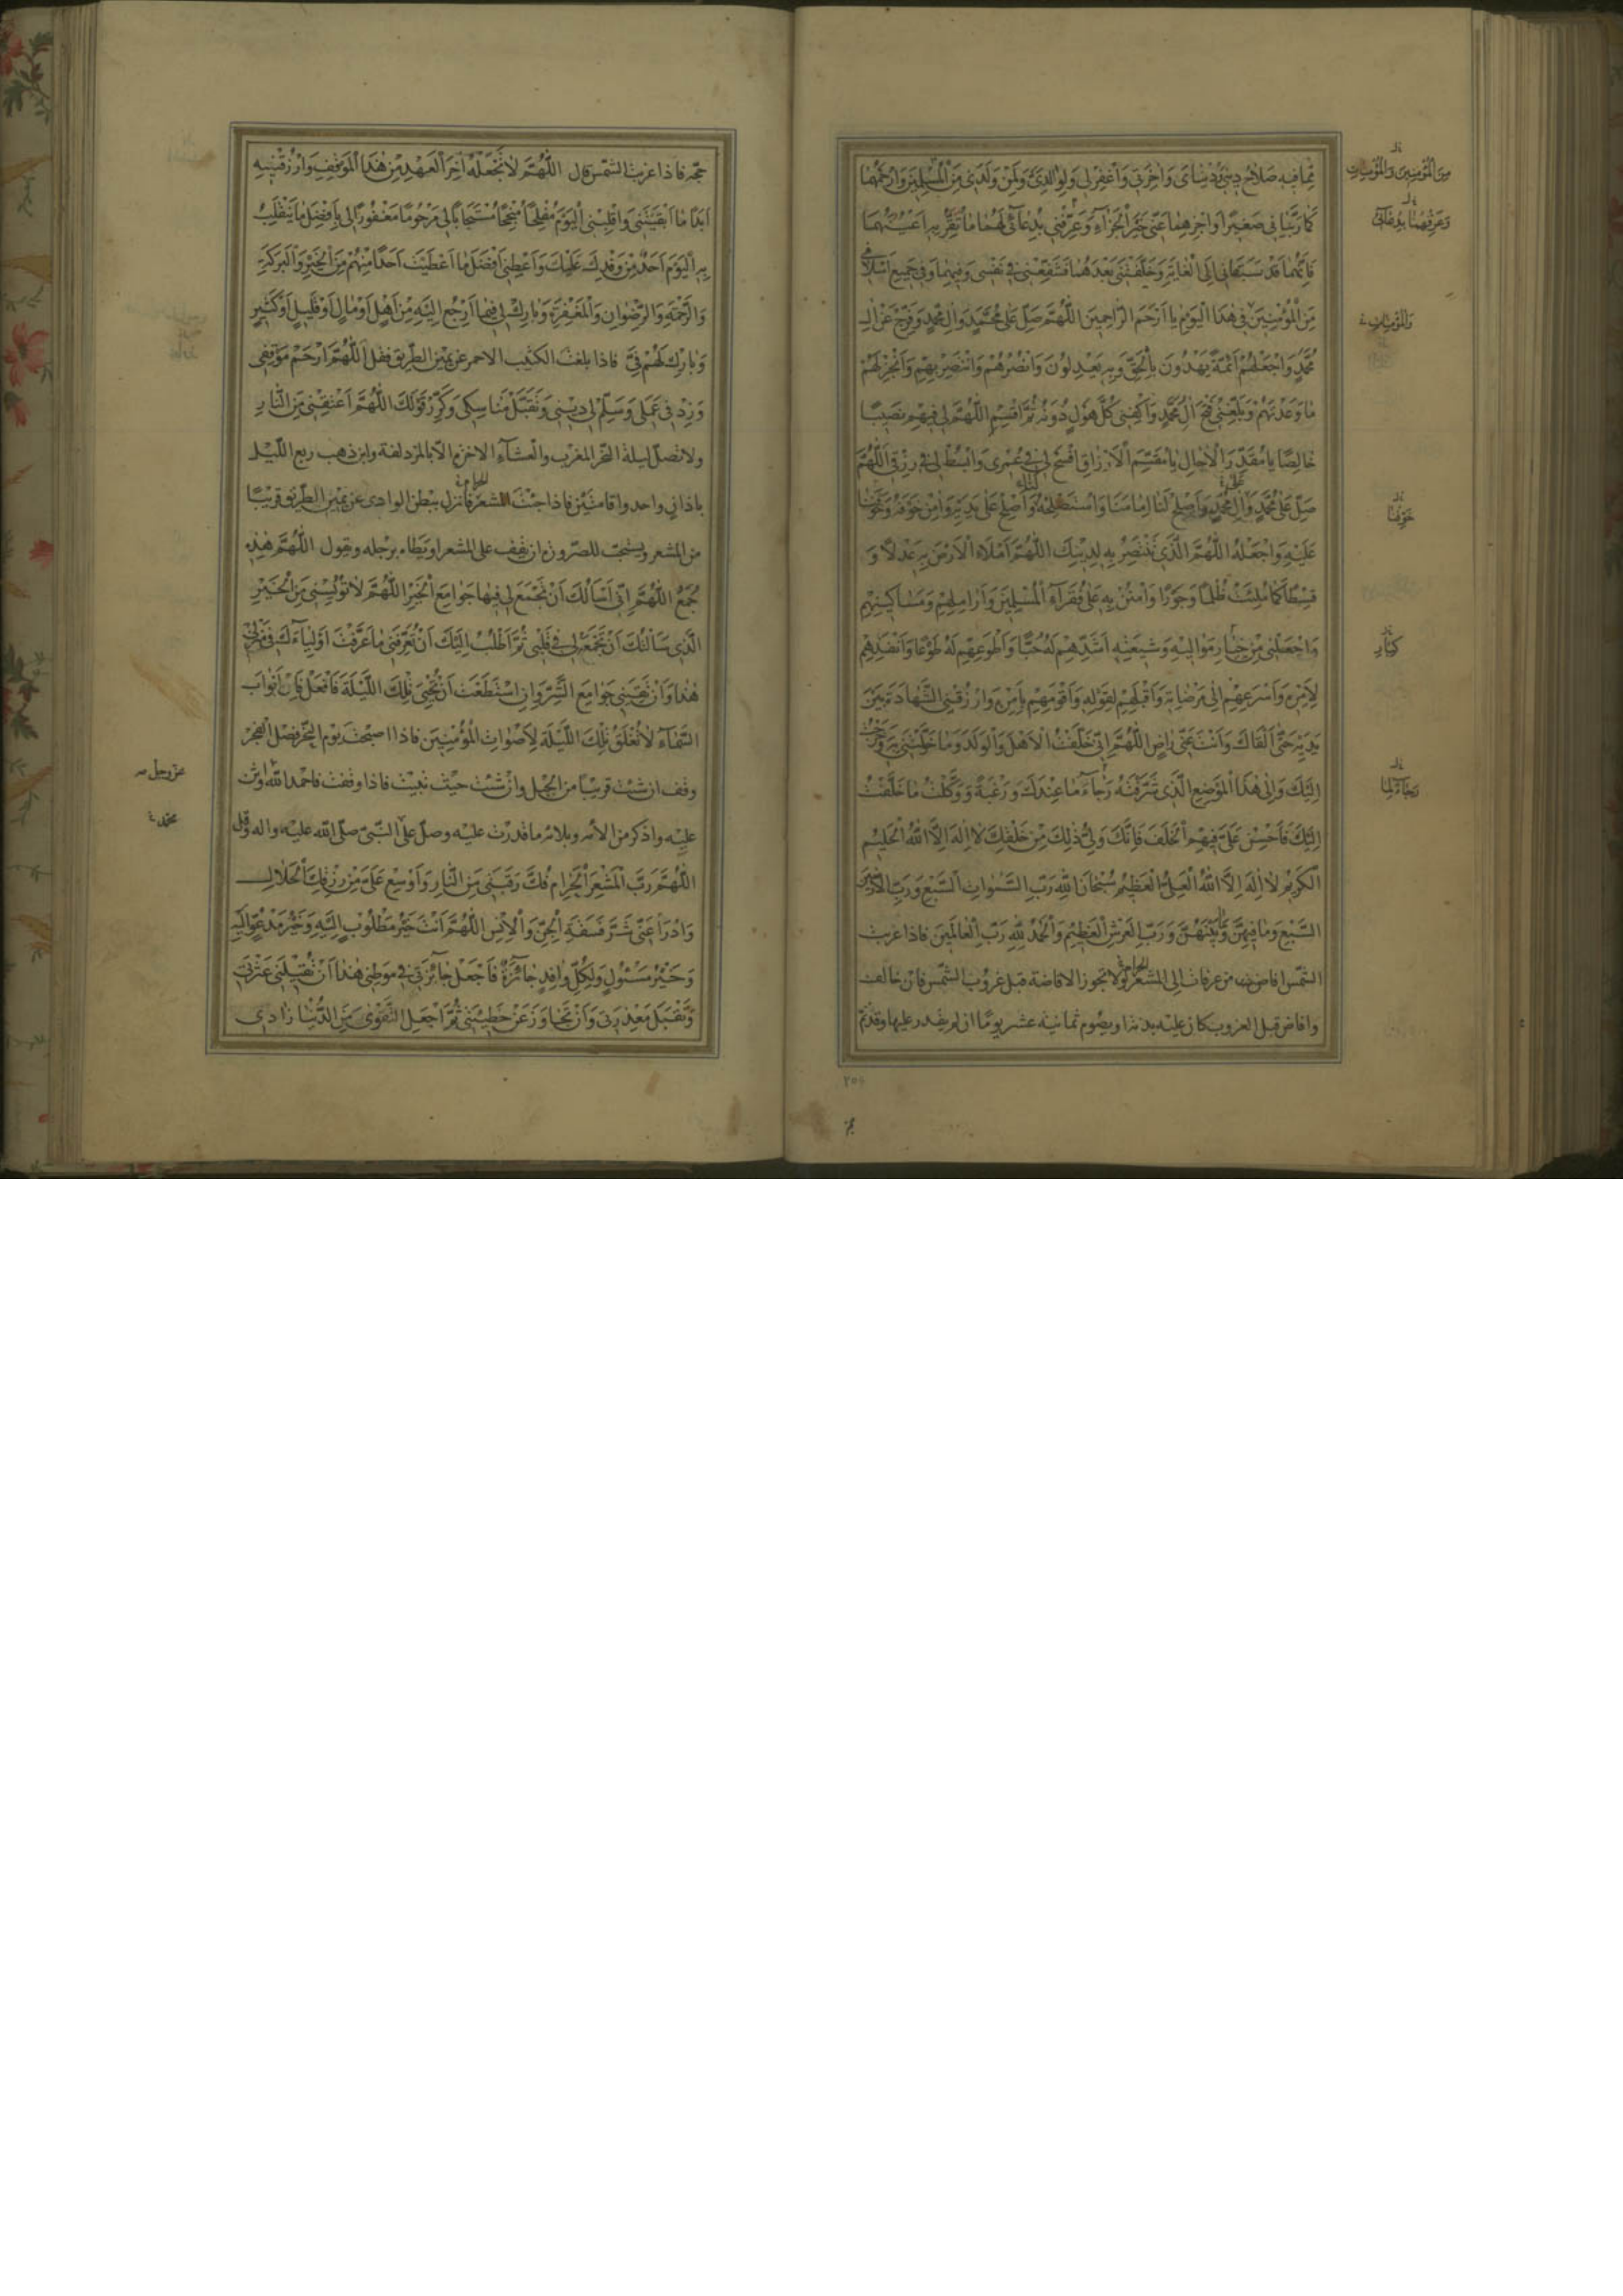 مِمَّا فِيهِ صَلَاحُ دِينِي وَدُنْيَايَ وَآخِرَتِي وَاغْفِرْ لِي وَلِوَالِدَيَّ وَلِمَنْ وَلَدَنِي مِنَ الْمُسْلِمِينَ وَارْحَمْهُمَا
كَمَا رَبَّيَانِي صَغِيرًا وَاجْزِهِمَا عَنِّي خَيْرَ الْجَزَاءِ وَعَرِّفْنِي بِدُعَائِي لَهُمَا مَا تُقِرُّ بِهِ أَعْيُنَهُمَا
فَإِنَّهُمَا قَدْ سَبَقَانِي إِلَى الْغَايَةِ وَخَلَّفْتَنِي بَعْدَهُمَا فَشَفِّعْنِي فِي نَفْسِي وَفِيهِمَا وَفِي جَمِيعِ أَسْلَافِي
مِنَ الْمُؤْمِنِينَ فِي هَذَا الْيَوْمِ يَا أَرْحَمَ الرَّاحِمِينَ اللَّهُمَّ صَلِّ عَلَى مُحَمَّدٍ وَآلِ مُحَمَّدٍ وَفَرِّجْ عَنْ آلِ
مُحَمَّدٍ وَاجْعَلْهُمْ أَئِمَّةً يَهْدُونَ بِالْحَقِّ وَبِهِ يَعْدِلُونَ وَانْصُرْهُمْ وَانْتَصِرْ بِهِمْ وَأَنْجِزْ لَهُمْ
مَا وَعَدْتَهُمْ وَبَلِّغْنِي فَتْحَ آلِ مُحَمَّدٍ وَاكْفِنِي كُلَّ هَوْلٍ دُونَهُ ثُمَّ اقْسِمِ اللَّهُمَّ لِي فِيهِمْ نَصِيبًا
خَالِصًا يَا مُقَدِّرَ الْآجَالِ يَا مُقَسِّمَ الْأَرْزَاقِ افْسَحْ لِي فِي عُمْرِي وَابْسُطْ لِي فِي رِزْقِي اللَّهُمَّ
صَلِّ عَلَى مُحَمَّدٍ وَآلِ مُحَمَّدٍ وَأَصْلِحْ لَنَا إِمَامَنَا وَاسْتَصْلِحْهُ وَأَصْلِحْ عَلَى يَدَيْهِ وَآمِنْ خَوْفَهُ وَخَوْفَنَا
عَلَيْهِ وَاجْعَلْهُ اللَّهُمَّ الَّذِي تَنْتَصِرُ بِهِ لِدِينِكَ اللَّهُمَّ امْلَأِ الْأَرْضَ بِهِ عَدْلًا وَ
قِسْطًا كَمَا مُلِئَتْ ظُلْمًا وَجَوْرًا وَامْنُنْ بِهِ عَلَى فُقَرَاءِ الْمُسْلِمِينَ وَأَرَامِلِهِمْ وَمَسَاكِينِهِمْ
وَاجْعَلْنِي مِنْ خِيَارِ مَوَالِيهِ وَشِيعَتِهِ أَشَدِّهِمْ لَهُ حُبًّا وَأَطْوَعِهِمْ لَهُ طَوْعًا وَأَنْفَذِهِمْ
لِأَمْرِهِ وَأَسْرَعِهِمْ إِلَى مَرْضَاتِهِ وَأَقْبَلِهِمْ لِقَوْلِهِ وَأَقْوَمِهِمْ بِأَمْرِهِ وَارْزُقْنِي الشَّهَادَةَ بَيْنَ
يَدَيْهِ حَتَّى أَلْقَاكَ وَأَنْتَ عَنِّي رَاضٍ اللَّهُمَّ إِنِّي خَلَّفْتُ الْأَهْلَ وَالْوَلَدَ وَمَا خَوَّلْتَنِي وَخَرَجْتُ
إِلَيْكَ وَإِلَى هَذَا الْمَوْضِعِ الَّذِي شَرَّفْتَهُ رَجَاءَ مَا عِنْدَكَ وَرَغْبَةً وَوَكَّلْتُ مَا خَلَّفْتُ
إِلَيْكَ فَأَحْسِنْ عَلَيَّ فِيهِمُ الْخَلَفَ فَإِنَّكَ وَلِيُّ ذَلِكَ مِنْ خَلْقِكَ لَا إِلَهَ إِلَّا اللَّهُ الْحَلِيمُ
الْكَرِيمُ لَا إِلَهَ إِلَّا اللَّهُ الْعَلِيُّ الْعَظِيمُ سُبْحَانَ اللَّهِ رَبِّ السَّمَوَاتِ السَّبْعِ وَرَبِّ الْأَرَضِينَ
السَّبْعِ وَمَا فِيهِنَّ وَمَا بَيْنَهُنَّ وَرَبِّ الْعَرْشِ الْعَظِيمِ وَالْحَمْدُ لِلَّهِ رَبِّ الْعَالَمِينَ فاذا غربت
الشمس افاض من عرفات الى المشعر الحرام ولا تجوز الافاضة قبل غروب الشمس فان خالف
وافاض قبل الغروب كان عليه بدنة او يصوم ثمانية عشر يوما ان لم يقدر عليها وقد تم
مِنَ الْمُؤْمِنِينَ وَالْمُؤْمِنَاتِ
وَعَرِّفْهُمَا بِدُعَائِي
وَالْمُؤْمِنَاتِ
خَوْفَنَا
كِبَارِ
رَجَاءً لِمَا
حجه فاذا غربت الشمس قال اللَّهُمَّ لَا تَجْعَلْهُ آخِرَ الْعَهْدِ مِنْ هَذَا الْمَوْقِفِ وَارْزُقْنِيهِ
أَبَدًا مَا أَبْقَيْتَنِي وَاقْلِبْنِي الْيَوْمَ مُفْلِحًا مُنْجِحًا مُسْتَجَابًا لِي مَرْحُومًا مَغْفُورًا لِي بِأَفْضَلِ مَا يَنْقَلِبُ
بِهِ الْيَوْمَ أَحَدٌ مِنْ وَفْدِكَ عَلَيْكَ وَأَعْطِنِي أَفْضَلَ مَا أَعْطَيْتَ أَحَدًا مِنْهُمْ مِنَ الْخَيْرِ وَالْبَرَكَةِ
وَالرَّحْمَةِ وَالرِّضْوَانِ وَالْمَغْفِرَةِ وَبَارِكْ لِي فِيمَا أَرْجِعُ إِلَيْهِ مِنْ أَهْلٍ أَوْ مَالٍ أَوْ قَلِيلٍ أَوْ كَثِيرٍ
وَبَارِكْ لَهُمْ فِيَّ فاذا بلغت الكثيب الاحمر عن يمين الطريق فقل اللَّهُمَّ ارْحَمْ مَوْقِفِي
وَزِدْ فِي عَمَلِي وَسَلِّمْ لِي دِينِي وَتَقَبَّلْ مَنَاسِكِي وَكَرِّرْ قَوْلَكَ اللَّهُمَّ أَعْتِقْنِي مِنَ النَّارِ
ولا تصل ليلة النحر المغرب والعشاء الاخرة الا بالمزدلفة وان ذهب ربع الليل
باذان واحد واقامتين فاذا جئت المشعر الحرام فانزل ببطن الوادي عن يمين الطريق قريبا
من المشعر ويستحب للصرورة ان يقف على المشعر او يطاء برجله ويقول اللَّهُمَّ هَذِهِ
جُمَعُ اللَّهُمَّ إِنِّي أَسْأَلُكَ أَنْ تَجْمَعَ لِي فِيهَا جَوَامِعَ الْخَيْرِ اللَّهُمَّ لَا تُؤْيِسْنِي مِنَ الْخَيْرِ
الَّذِي سَأَلْتُكَ أَنْ تَجْمَعَهُ لِي فِي قَلْبِي ثُمَّ أَطْلُبُ إِلَيْكَ أَنْ تُعَرِّفَنِي مَا عَرَّفْتَ أَوْلِيَاءَكَ فِي مَنْزِلِي
هَذَا وَأَنْ تَقِيَنِي جَوَامِعَ الشَّرِّ وَإِنِ اسْتَطَعْتَ أَنْ تُحْيِيَ تِلْكَ اللَّيْلَةَ فَافْعَلْ فَإِنَّ أَبْوَابَ
السَّمَاءِ لَا تُغْلَقُ تِلْكَ اللَّيْلَةَ لِأَصْوَاتِ الْمُؤْمِنِينَ فاذا اصبحت يوم النحر فصل الفجر
وقف ان شئت قريبا من الجبل وان شئت حيث تبيت فاذا وقفت فاحمد الله واثن
عليه واذكر من الائه وبلائه ما قدرت عليه وصل على النبي صلى الله عليه واله وقل
اللَّهُمَّ رَبَّ الْمَشْعَرِ الْحَرَامِ فُكَّ رَقَبَتِي مِنَ النَّارِ وَأَوْسِعْ عَلَيَّ مِنْ رِزْقِكَ الْحَلَالِ
وَادْرَأْ عَنِّي شَرَّ فَسَقَةِ الْجِنِّ وَالْإِنْسِ اللَّهُمَّ أَنْتَ خَيْرُ مَطْلُوبٍ إِلَيْهِ وَخَيْرُ مَدْعُوٍّ إِلَيْهِ
وَخَيْرُ مَسْئُولٍ وَلِكُلِّ وَافِدٍ جَائِزَةٌ فَاجْعَلْ جَائِزَتِي فِي مَوْطِنِي هَذَا أَنْ تُقِيلَنِي عَثْرَتِي
وَتَقْبَلَ مَعْذِرَتِي وَأَنْ تَجَاوَزَ عَنْ خَطِيئَتِي ثُمَّ اجْعَلِ التَّقْوَى مِنَ الدُّنْيَا زَادِي
عز وجل
محمد